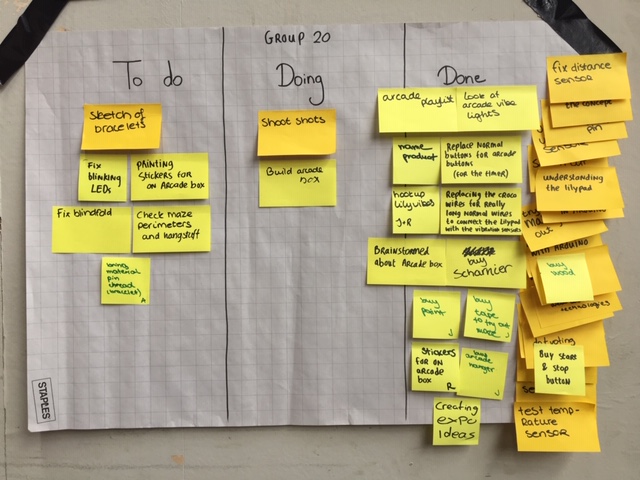 GROUP 20
To do
Doing
Done
Sketch of
bracelets
Fix
blinking
LEDs
PAINTING
Stickers for
on Arcade box
Fix blindfold
Check maze
perimeters
and hangstuff
material
pin
thread
(bracelet)
A
Shoot shots
Build arcade
box
arcade
playlist
Look at
arcade vibe
lights
name
product
Replace Normal
buttons for arcade
buttons
(for the timer)
hookup
lilyvibes
J+R
Replacing the croco
wires for really
long normal wires
to connect the lilypad
with the vibration sensors
Brainstormed
about Arcade box
buy
Scharnier
buy
paint
J
buy
tape
to try out
maze
J
Stickers
for on
arcade
box
R
buy
arcade
hanger
Creating
expo
Ideas
fix distance
sensor
the concept
pin
understanding
the lilypad
out
with Arduino
buy
wood
technologies
voting
Buy start
& stop
button
test temp-
rature
sensor
STAPLES